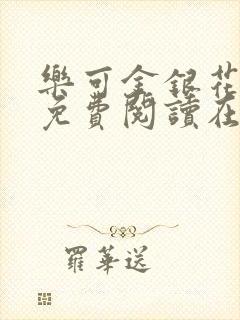 樂可金銀花
免費閱讀在
羅華送